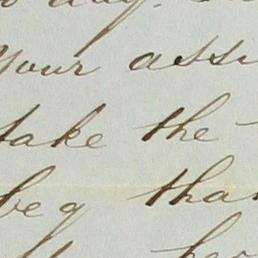 day.
Your assi
take the
beg tha